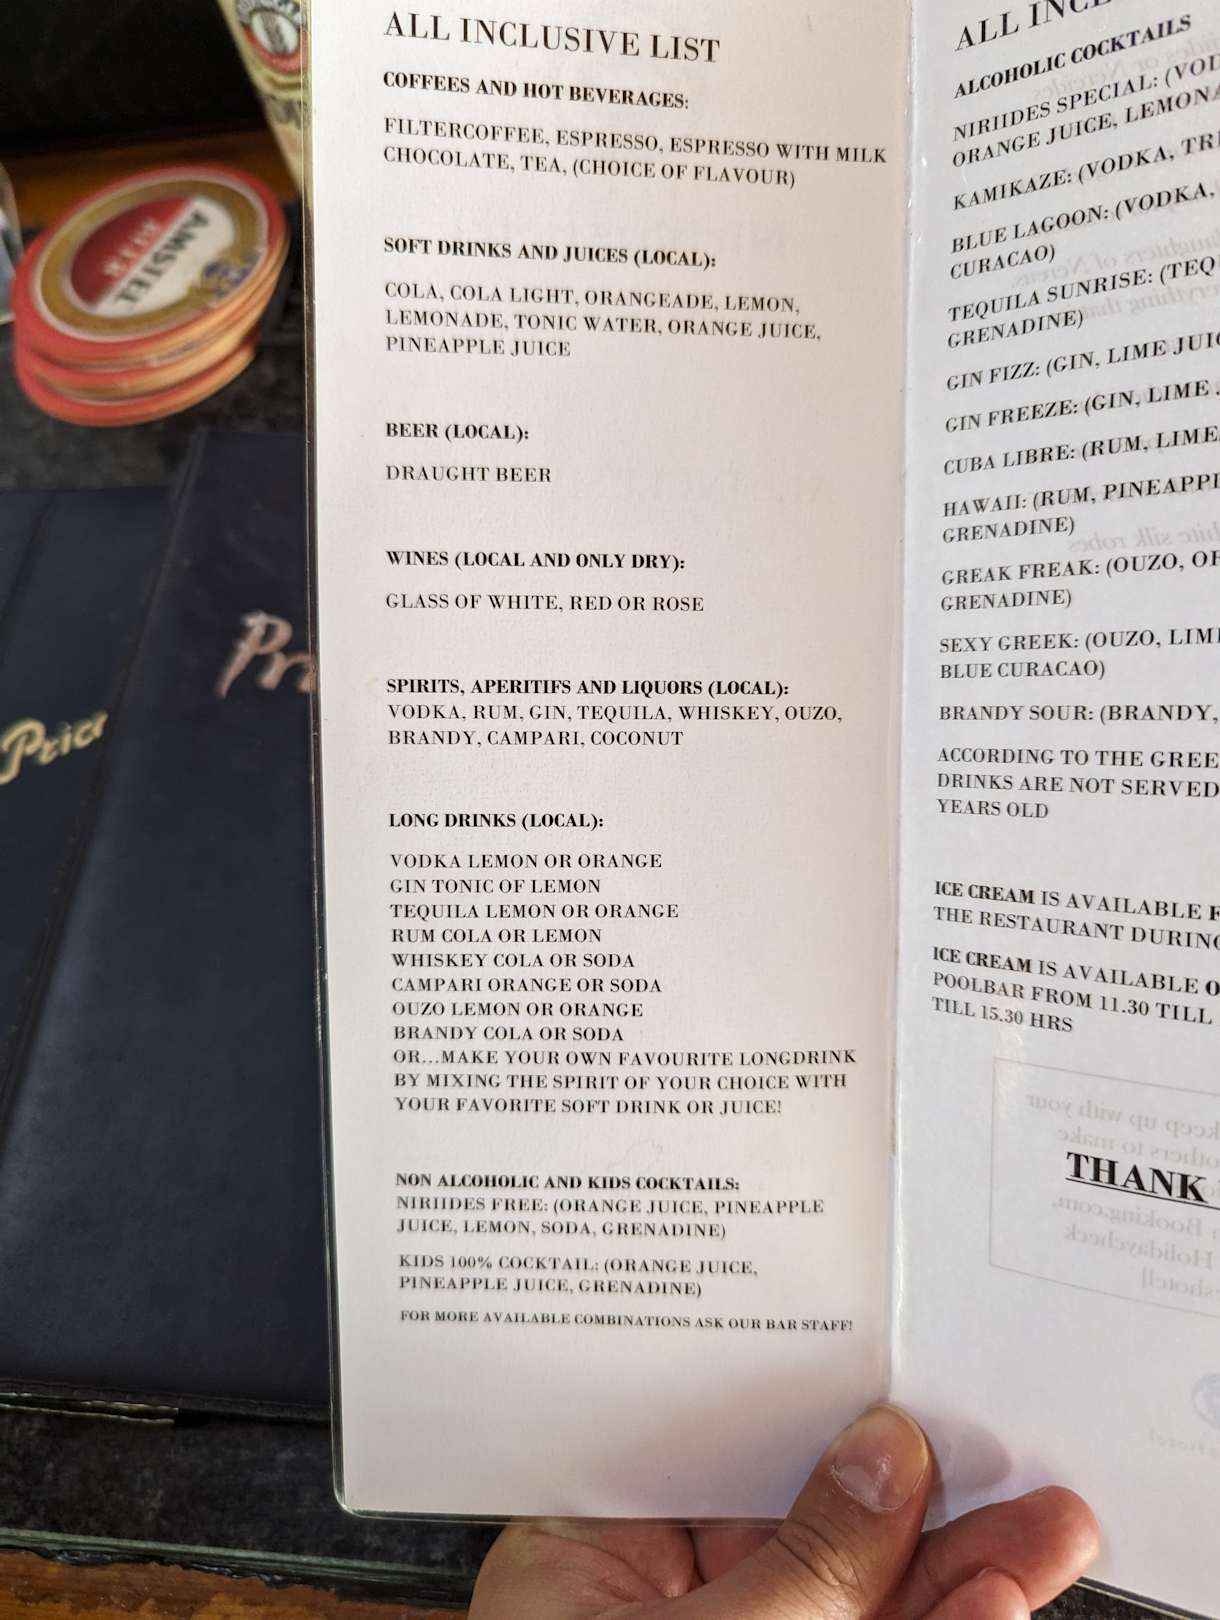 ALL INCLUSIVE LIST
COFFEES AND HOT BEVERAGES:
FILTERCOFFEE, ESPRESSO, ESPRESSO WITH MILK
CHOCOLATE, TEA, (CHOICE OF FLAVOUR)
SOFT DRINKS AND JUICES (LOCAL):
COLA, COLA LIGHT, ORANGEADE, LEMON,
LEMONADE, TONIC WATER, ORANGE JUICE,
PINEAPPLE JUICE
BEER (LOCAL):
DRAUGHT BEER
WINES (LOCAL AND ONLY DRY):
GLASS OF WHITE, RED OR ROSE
SPIRITS, APERITIFS AND LIQUORS (LOCAL):
VODKA, RUM, GIN, TEQUILA, WHISKEY, OUZO,
BRANDY, CAMPARI, COCONUT
LONG DRINKS (LOCAL):
VODKA LEMON OR ORANGE
GIN TONIC OF LEMON
TEQUILA LEMON OR ORANGE
RUM COLA OR LEMON
WHISKEY COLA OR SODA
CAMPARI ORANGE OR SODA
OUZO LEMON OR ORANGE
BRANDY COLA OR SODA
OR...MAKE YOUR OWN FAVOURITE LONGDRINK
BY MIXING THE SPIRIT OF YOUR CHOICE WITH
YOUR FAVORITE SOFT DRINK OR JUICE!
NON ALCOHOLIC AND KIDS COCKTAILS:
NIRIIDES FREE: (ORANGE JUICE, PINEAPPLE
JUICE, LEMON, SODA, GRENADINE)
KIDS 100% COCKTAIL: (ORANGE JUICE,
PINEAPPLE JUICE, GRENADINE)
FOR MORE AVAILABLE COMBINATIONS ASK OUR BAR STAFF!
ALL
ALCOHOLIC COCKTAILS
NIRIIDES SPECIAL:
ORANGE JUICE,
KAMIKAZE: (VODKA,
BLUE LAGOON: (VODKA,
CURACAO)
TEQUILA SUNRISE:
GRENADINE)
GIN FIZZ: (GIN, LIME
GIN FREEZE: (GIN, LIME
CUBA LIBRE: (RUM, LIME
HAWAII: (RUM,
GRENADINE)
GREAK FREAK: (OUZO,
GRENADINE)
SEXY GREEK: (OUZO,
BLUE CURACAO)
BRANDY SOUR: (BRANDY,
ACCORDING TO THE
DRINKS ARE NOT SERVED
YEARS OLD
ICE CREAM IS AVAILABLE
THE RESTAURANT
ICE CREAM IS AVAILABLE
POOLBAR FROM 11.30 TILL
TILL 15.30 HRS
THANK
AMSTEL